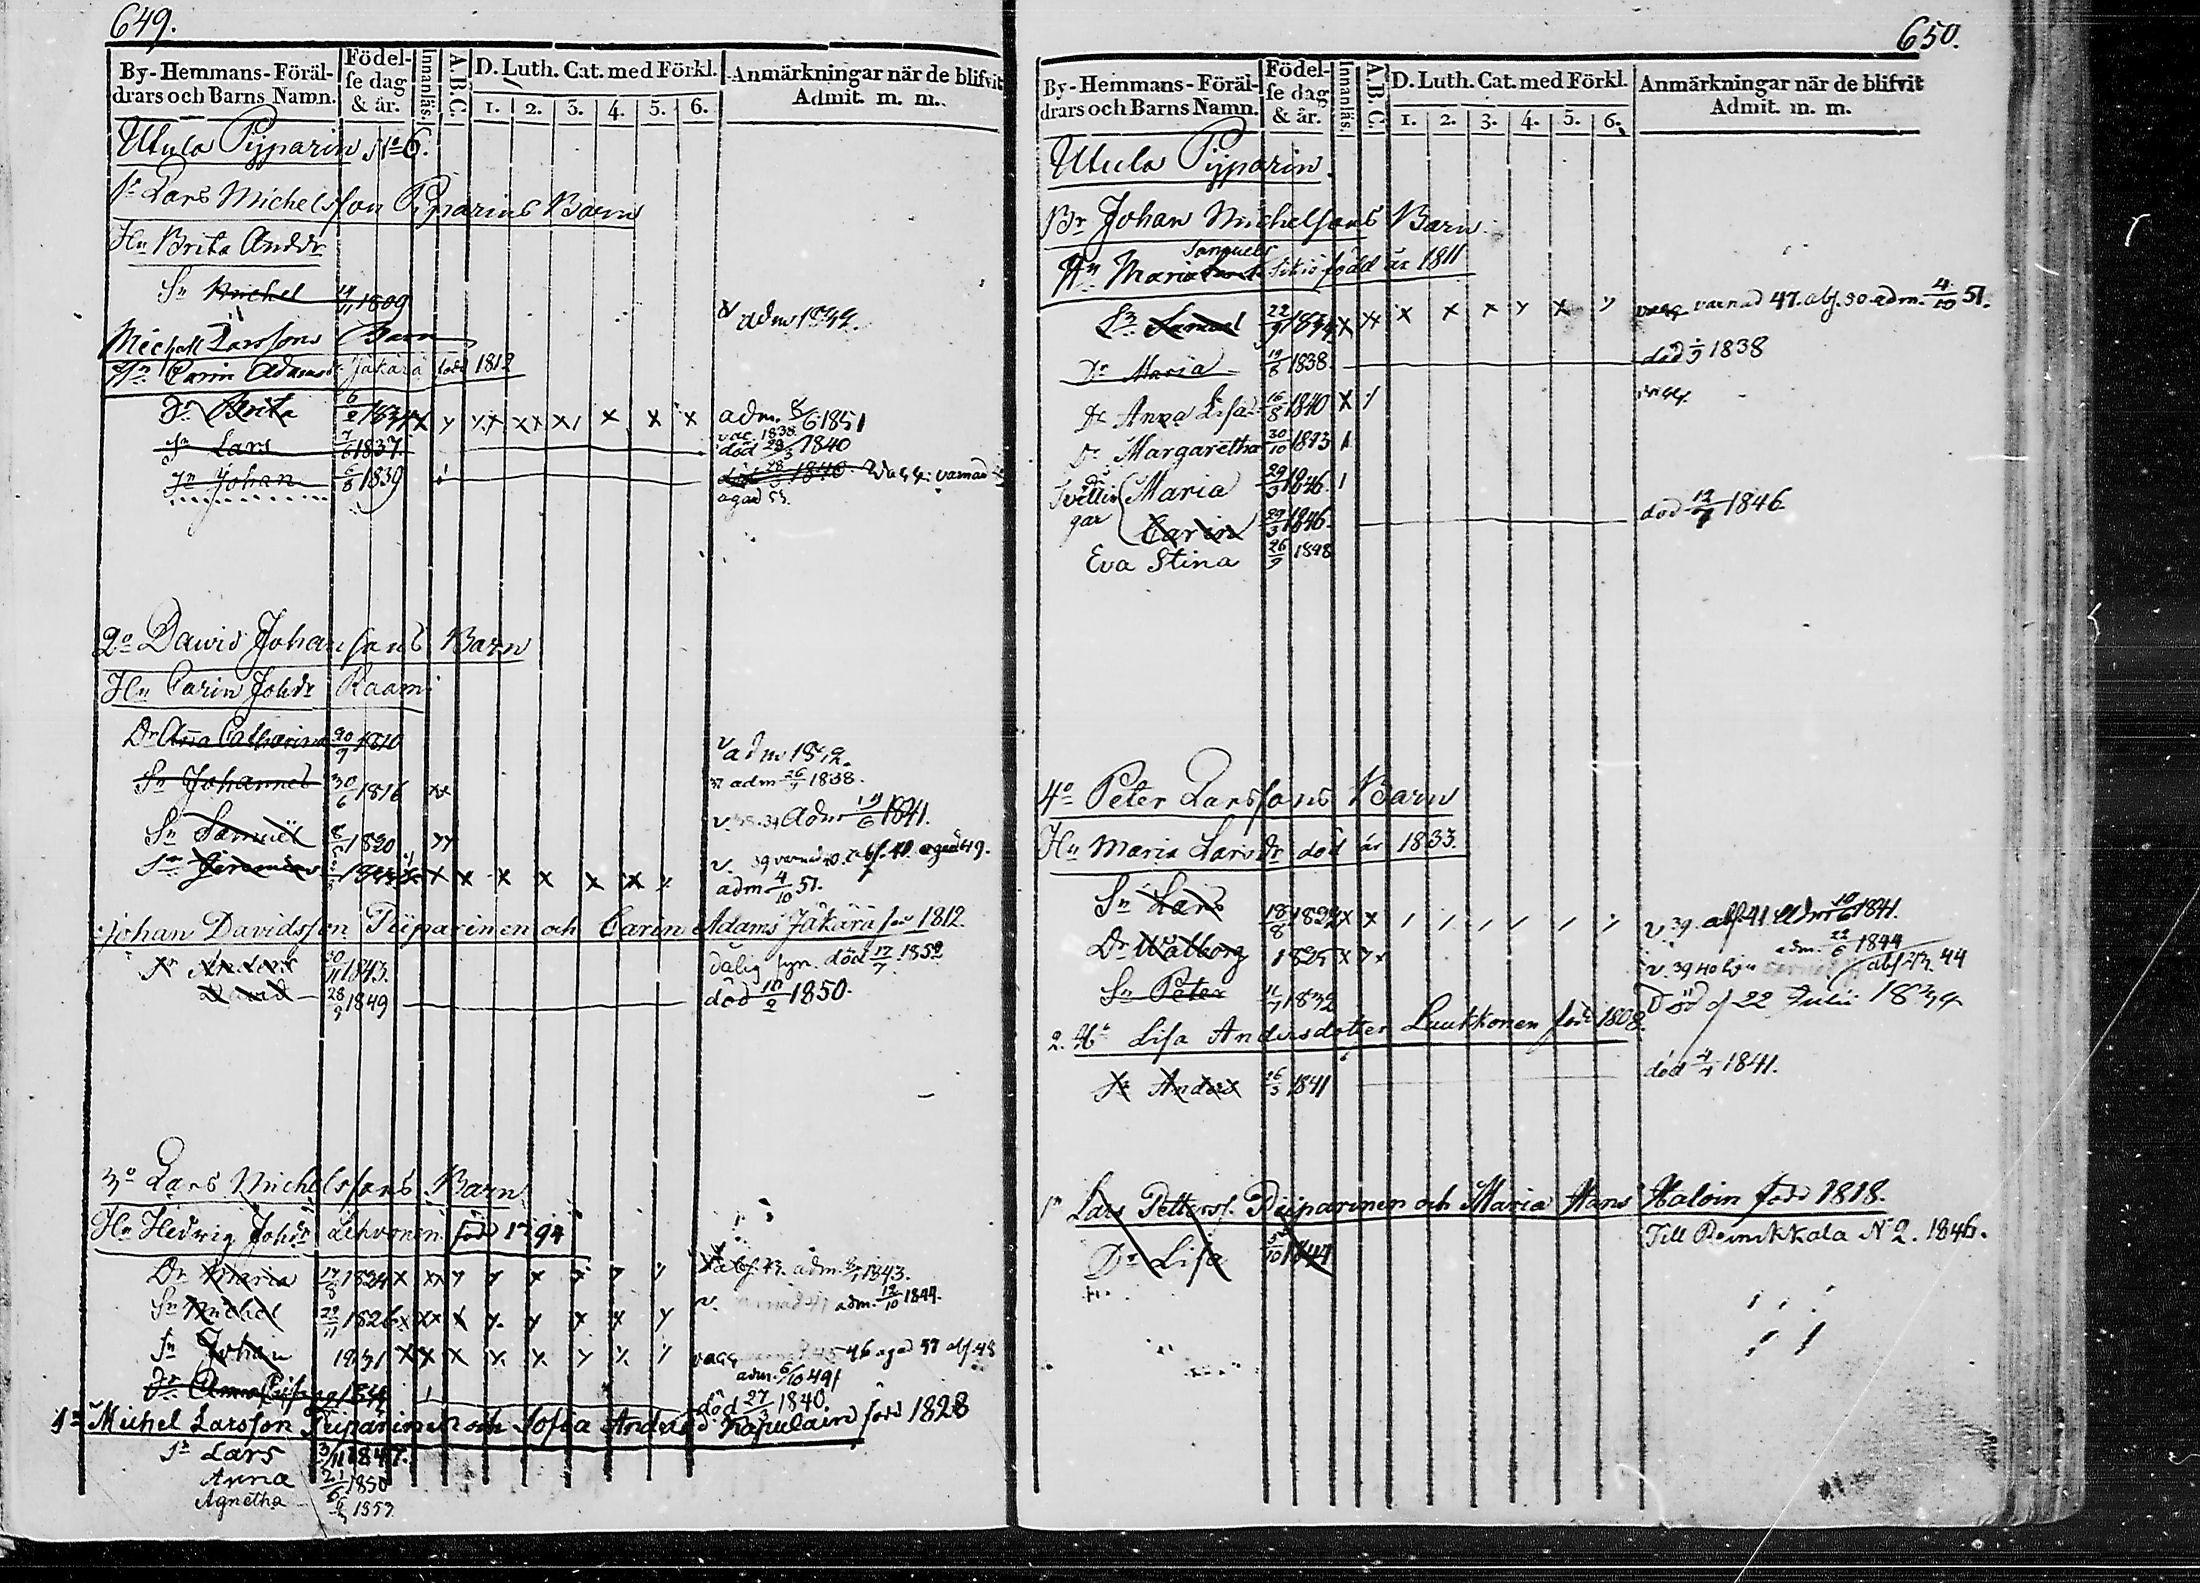 649.
By-Hemmans-Föräl-
drars och Barns Namn.
Födel-
se dag
& år.
Innanläs.
A.B.C.
D. Luth. Cat. med Förkl.
1. 2. 3. 4. 5. 6.
Anmärkningar när de blifvit
Admit. m. m.
Utula Pijparin No 6.
1o Lars Michelsson Piparins Barn
Hu Brita Andr
Sn Michel 1809 adm 1834.
Michell Larssons Barn
Hu Carin Adamsdr Jäkärä född 1812
Dr Brita 6/2 1834 x y x x x adm. 8/6 1851
vac. 1838.
Sn Lars 7/6 1837. död 28/3 1840
Sn Johan 6/8 1839 död 28/3 1840 varnad
agad 53.
2o Dawid Johansons Barn
Hu Carin Johdr Raami
Dr Aña Catharina 20/9 1810 adm 1832.
Sn Johannes 30/6 1816 xx adm 26/ 1838.
Sn Samuel 8/ 1820 yy v. 38.39 Adm 14/6 1841.
Sn Jeremias x x x x x x v. 39 varnad 40. abs. 48 agad 49.
adm 4/10 51.
Johan Davidsson Piiparinen och Carin Adams Jäkärä föd 1812.
Sn Anders 30/11 1843. dålig syn. död 17/7 1852
David 28/9 1849 död 10/2 1850.
3o Lars Michelssons Barn
Hu Hedwig Johdr Lehvonen född 1794
Dr Maria 17/8 1824 x xx y y x y y y abs. 43. adm. 1843.
Sn Michel 29/11 1826 x xx x y y x x y v. adm. 12/10 1844.
Sn Johan 1831 x x x x x y x y vagg 46 agad 57 abs. 48
adm. 6/10 49
Dr Anna 1834 1 död 27/3 1840.
1o Michel Larsson Piiparinen och Sofia Andersd Kapulain född 1828
Sn Lars 3/11 1847.
Anna 21/6 1850
Agnetha 1853
650.
By-Hemmans-Föräl-
drars och Barns Namn.
Födel-
se dag
& år.
Innanläs.
A.B.C.
D. Luth. Cat. med Förkl.
1. 2. 3. 4. 5. 6.
Anmärkningar när de blifvit
Admit. m. m.
Utula Pijparin.
Br Johan Michelsons Barn
Samuels
Hu Maria Sikiö född år 1811
Sn Samuel 22/9 1834 x x x x x y x y vagg varnad 47. abs. 50 adm. 4/10 51.
Dr Maria 19/6 1838. död 1838
Dr Anna Lisa 16/8 1840 x 1
Dr Margaretha 30/10 1843 1
Tvillin
gar
Maria 29/3 1846. 1
Carin 29/3 1846. död 12/7 1846
Eva Stina 26/9 1848
4o Peter Larssons Barn
Hu Maria Larsdr död år 1833.
Sn Lars 18/8 1822 x x / / / / / v. 39. abs. 41 Adm 10/6 1841.
adm. 22/6 1844
Dr Walborg 1825 x y x v. 39 40 abs 43. 44
Sn Peter 11/7 1832 Död d 22 Julii 1834
2. Hu Lisa Andersdotter Luukkonen född 1808.
Sn Anders 26/3 1841 död 4/4 1841.
1o Lars Petterss. Piiparinen och Maria Hans Haloin född 1818.
Till Remikkala No 2. 1846.
Dr Lisa 5/10 1844